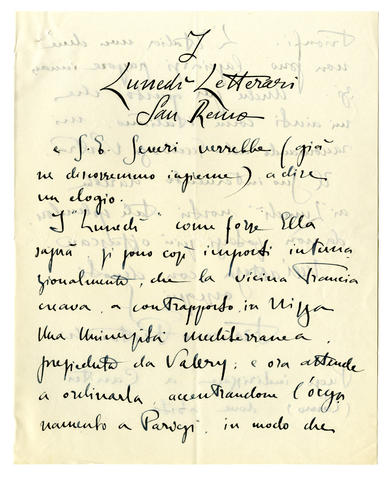 I
Lunedì Letterari
San Remo
e S. E. Severi verrebbe (già
ne discorremmo insieme) a dire
un elogio.
I "Lunedì" come forse Ella
saprà si sono così imposti interna
zionalmente, che la vicina Francia
creava, a contrapposto, in Nizza
una Università mediterranea,
presieduta da Valery; e ora attende
a ordinarla, accentrandone l'orga
namento a Parigi, in modo che